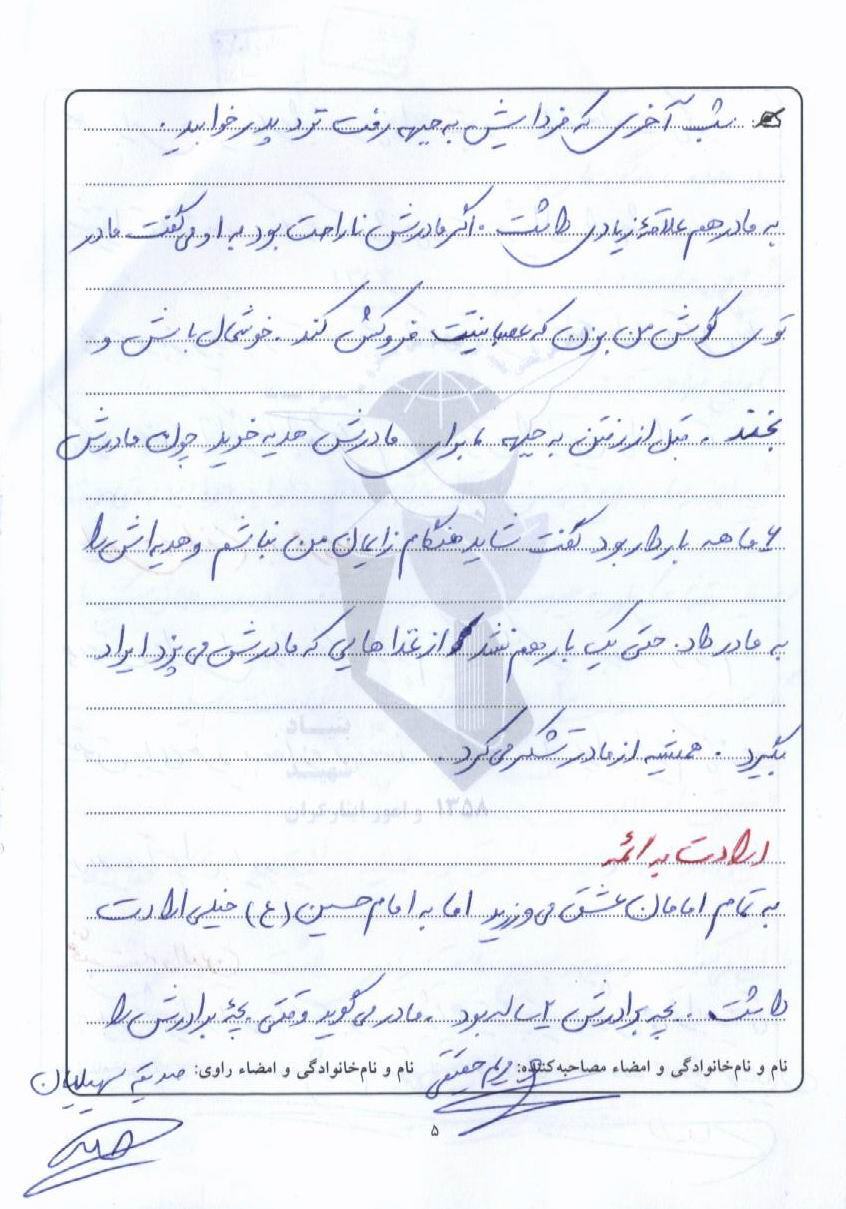 شب آخری که فردایش به جبهه رفت نزد پدر خوابید.
به مادر هم علاقهٔ زیادی داشت. اگر مادرش ناراحت بود به او می‌گفت مادر
توی گوش من بزن که عصبانیتت فروکش کند. خوشحال باش و
بخند. قبل از رفتن به جبهه برای مادرش هدیه خرید چون مادرش
۶ ماهه باردار بود گفت شاید هنگام زایمان من نباشم و هدیه‌اش را
به مادر داد. حتی یک بار هم نشد از غذاهایی که مادرش می‌پزد ایراد
بگیرد. همیشه از مادر تشکر می‌کرد.
بنیاد
شهید
و امور ایثارگران ۱۳۵۸
ارادت به ائمه
به تمام امامان عشق می‌ورزید اما به امام حسین (ع) خیلی ارادت
داشت. بچه برادرش ۲ ساله بود. مادر می‌گوید وقتی بچهٔ برادرش را
نام و نام‌خانوادگی و امضاء مصاحبه‌کننده: مریم حقیقی نام و نام‌خانوادگی و امضاء راوی: صدیقه سهیلیان
۵